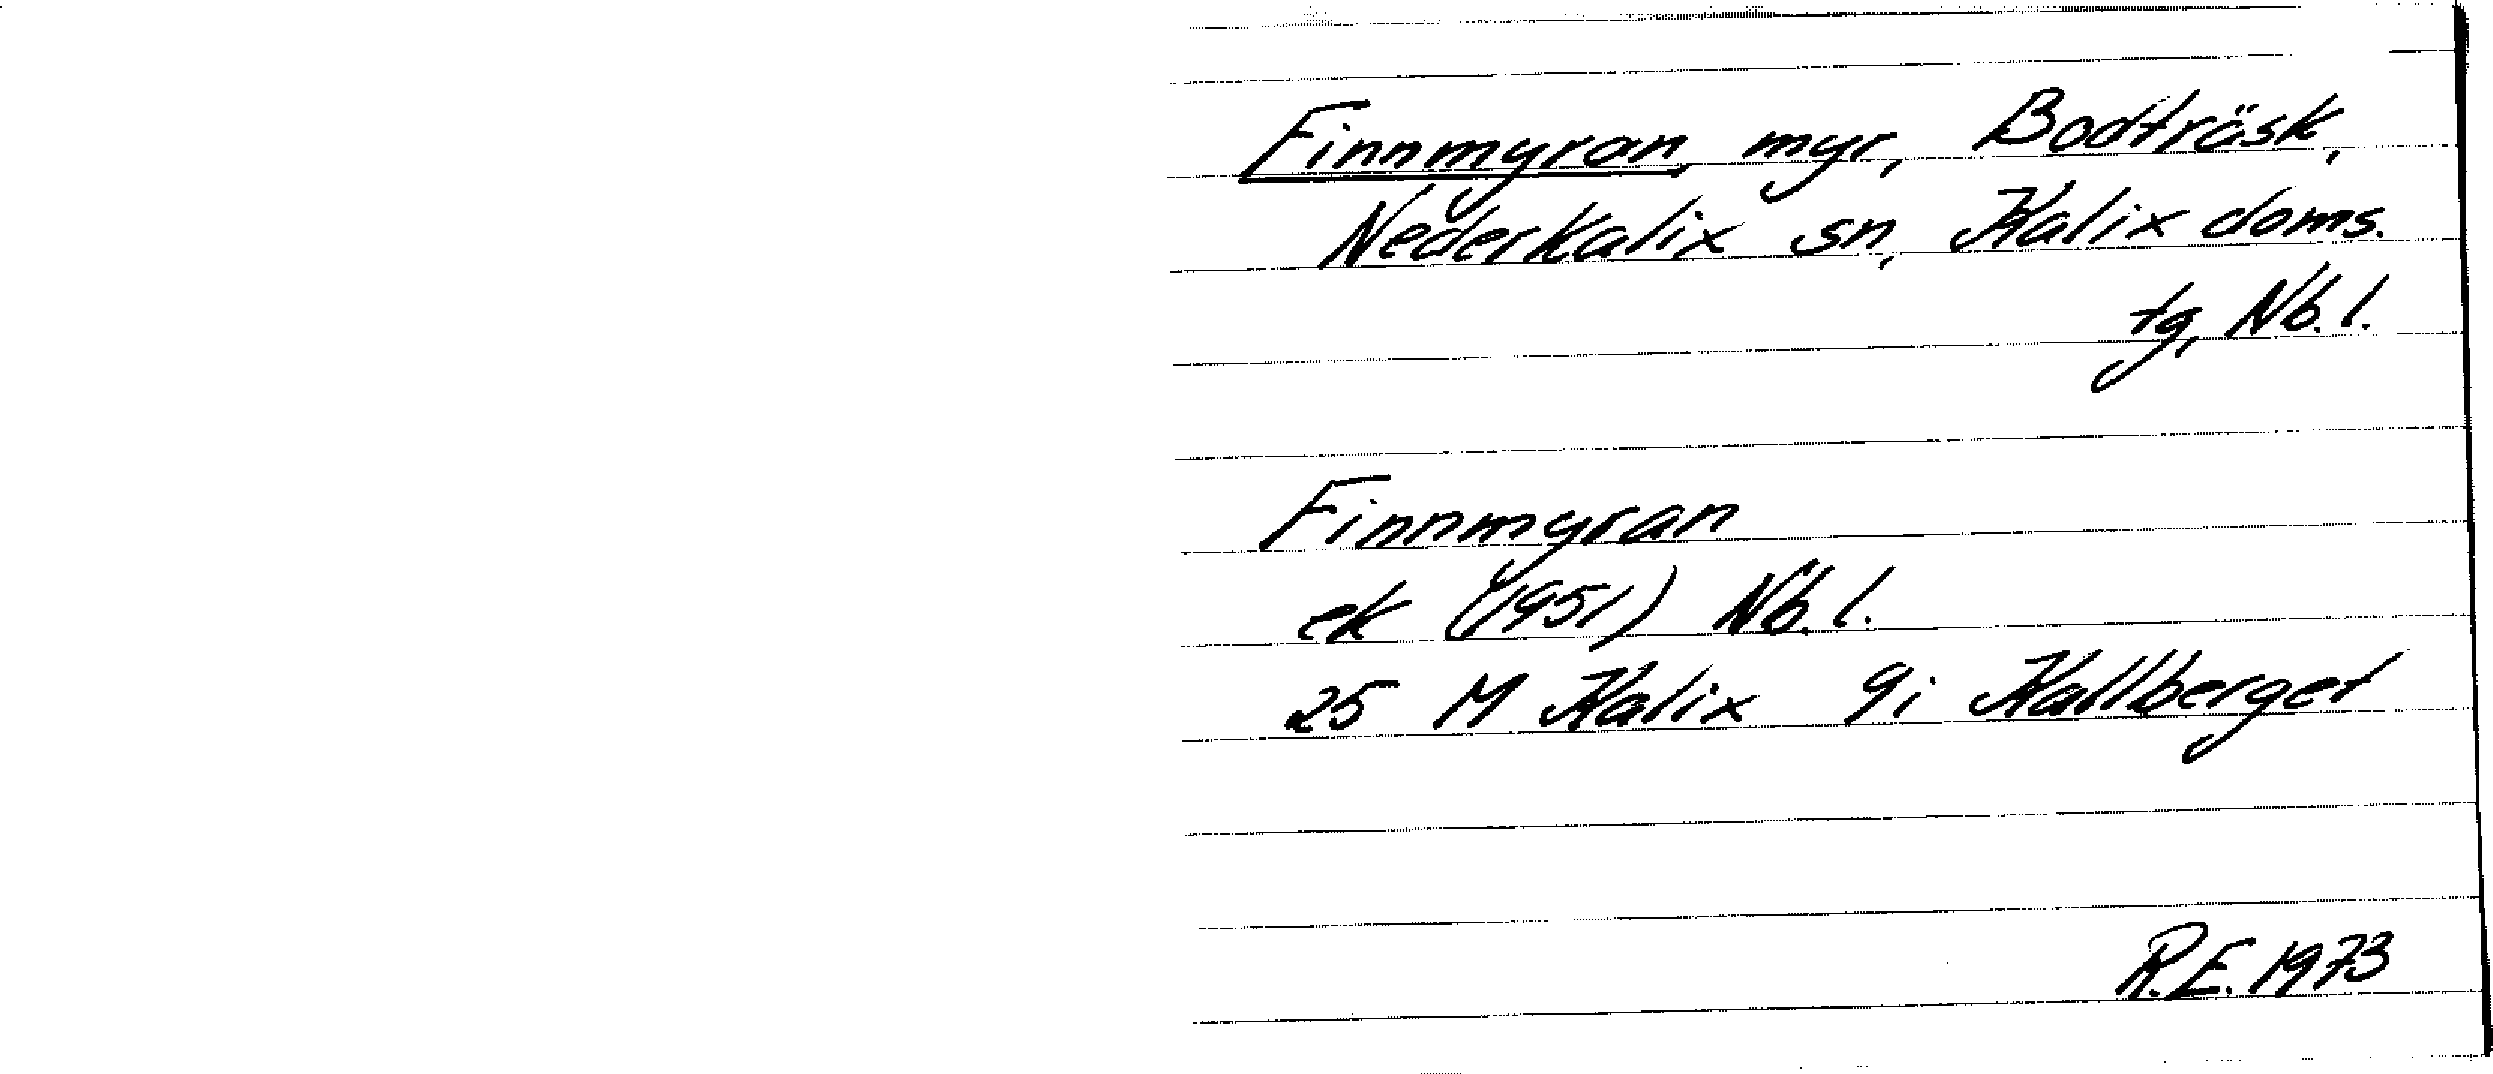 Finnmyran, myr, Bodträsk,
Nederkalix sn, Kalix doms.
tg, Nb. l.
Finnmyran
ek (1951) Nb. l.
25 M Kalix 9i Kallberget
R.E. 1973